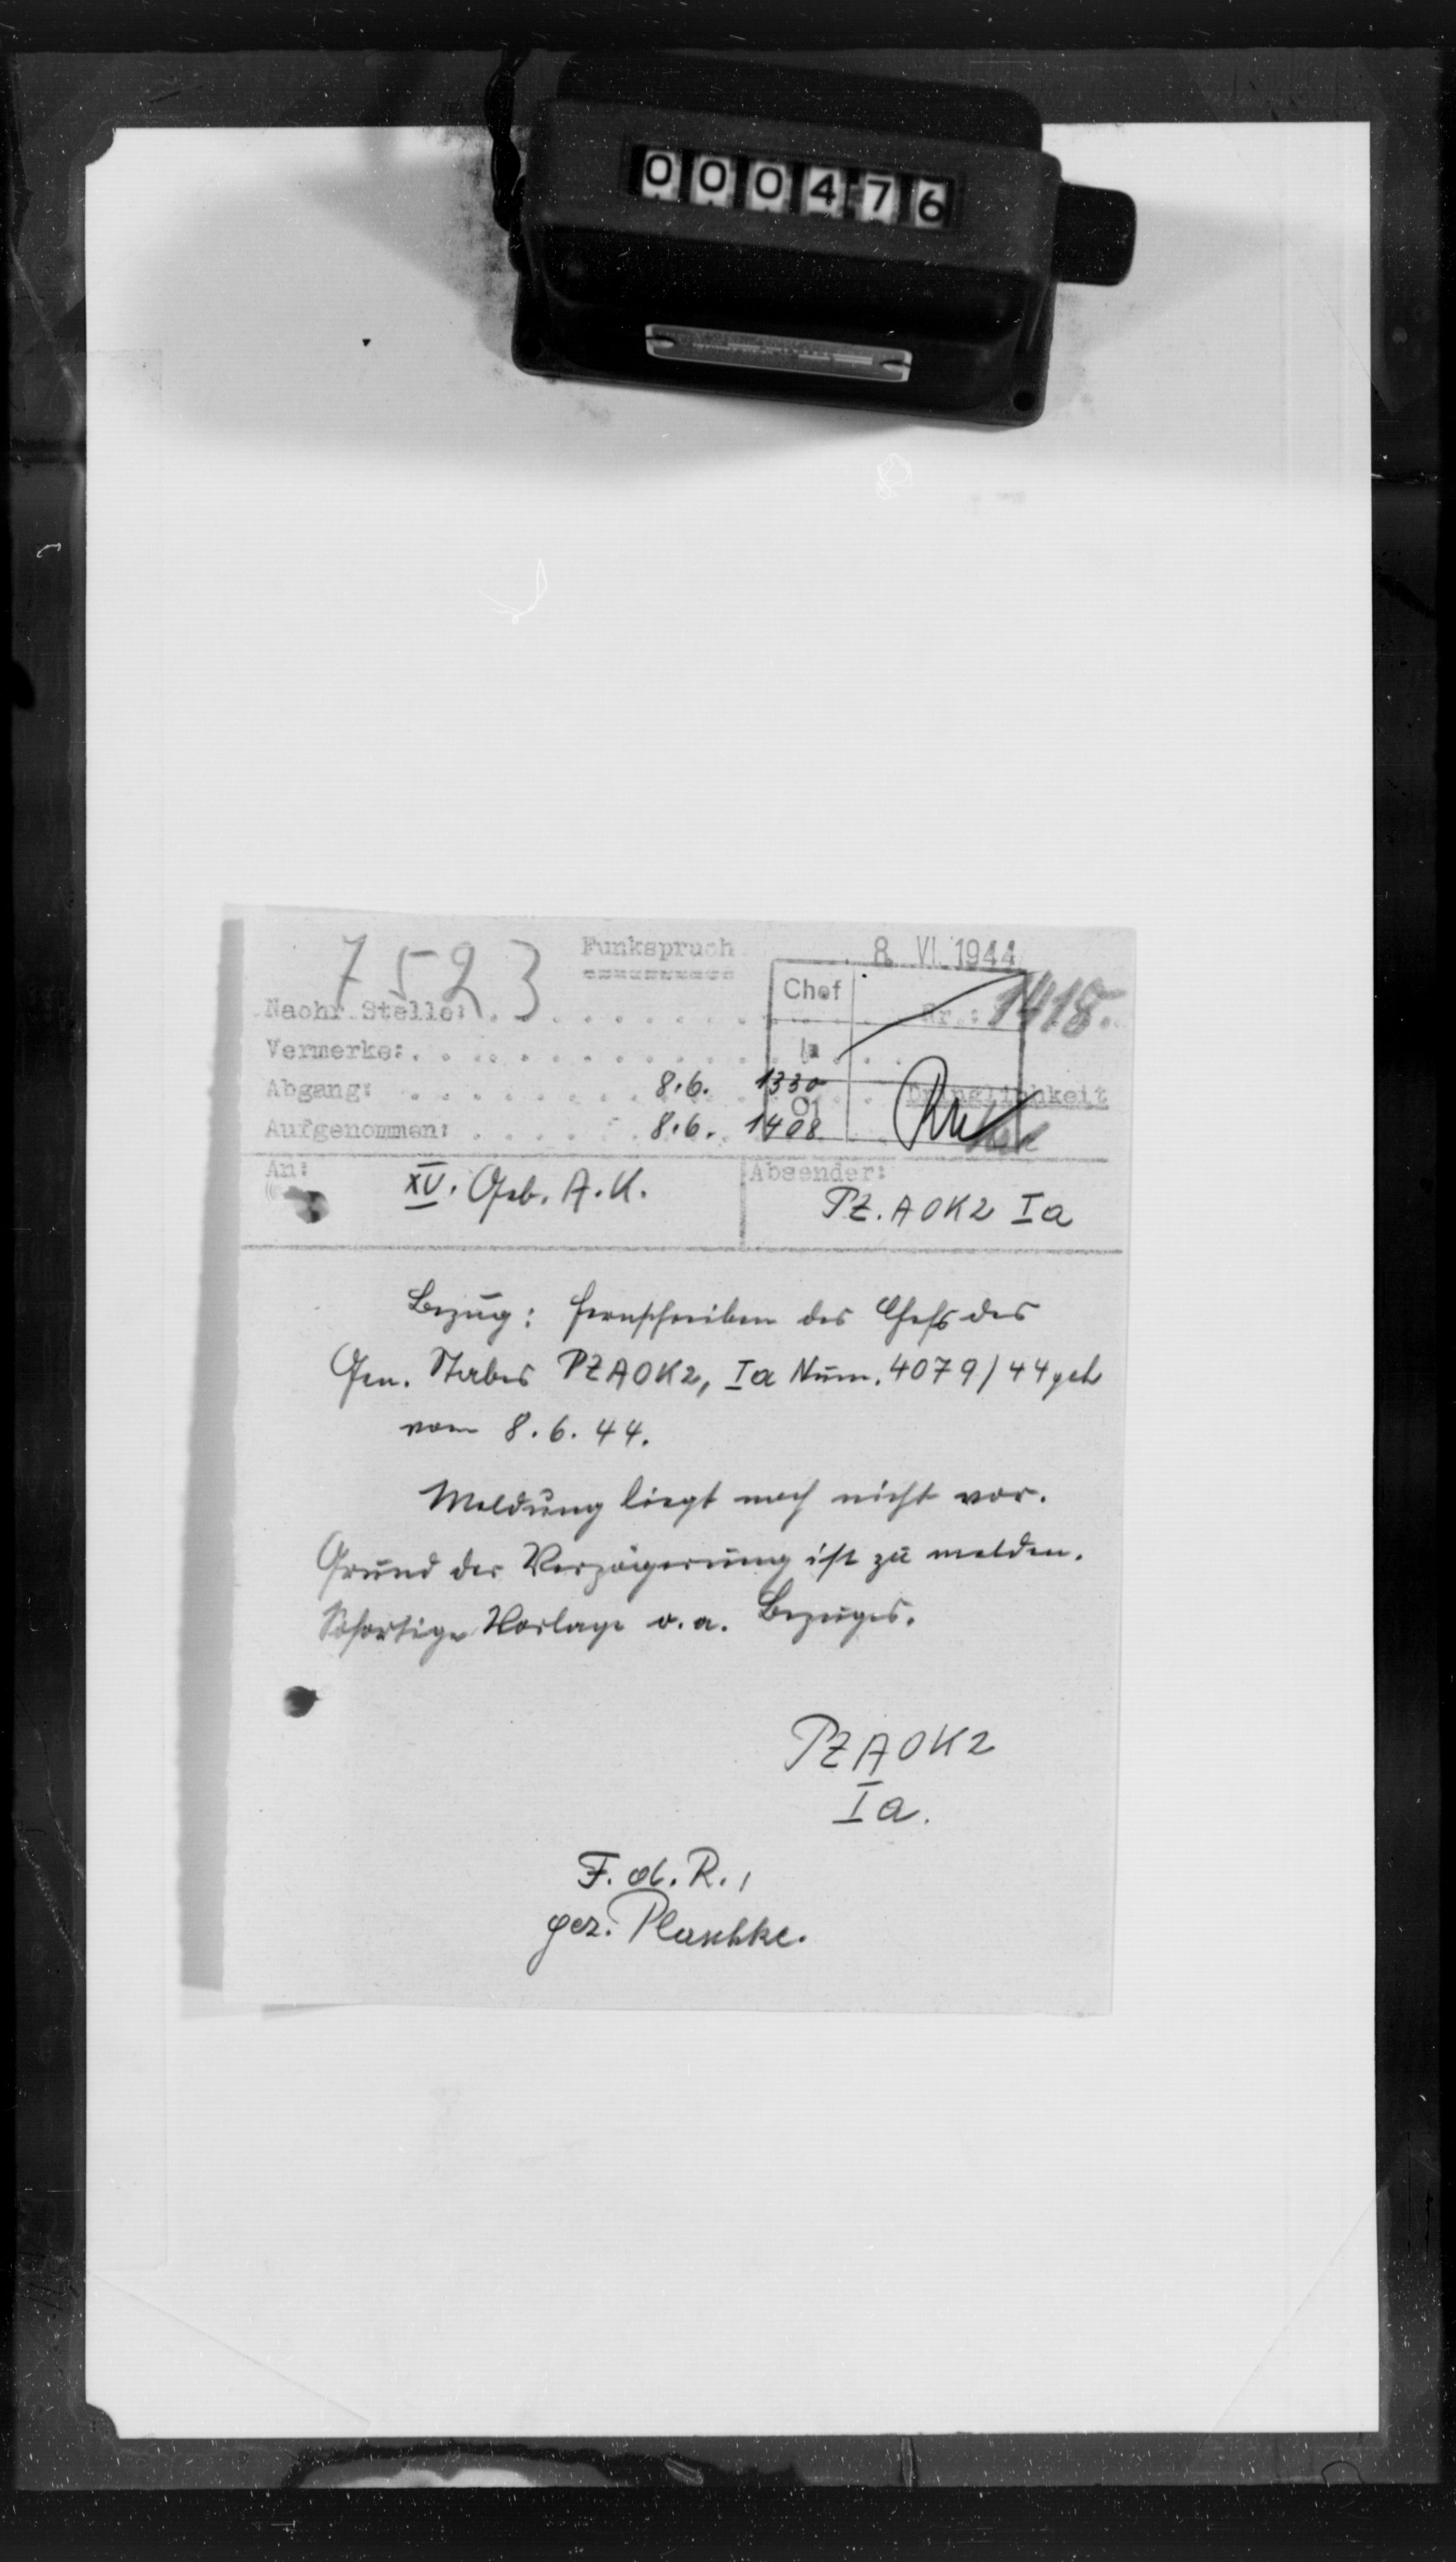 000476
7523
Funkspruch
8. VI. 1944
Chef
Nachr.Stelle:
Nr.: 1418.
Vermerke:
Ia
Abgang: 8.6. 1330
Dringlichkeit
O1
Aufgenommen: 8.6. 1408
An: XV. Geb. A.K.
Absender: PZ. AOK2 Ia
Bezug: Fernschreiben des Chefs des
Gen. Stabes PZAOK2, Ia Num. 4079/44 geh
vom 8.6.44.
Meldung liegt noch nicht vor.
Grund der Verzögerung ist zu melden.
Sofortige Vorlage o.a. Bezuges.
PZAOK2
Ia.
F.d.R.,
gez. Plaschke.